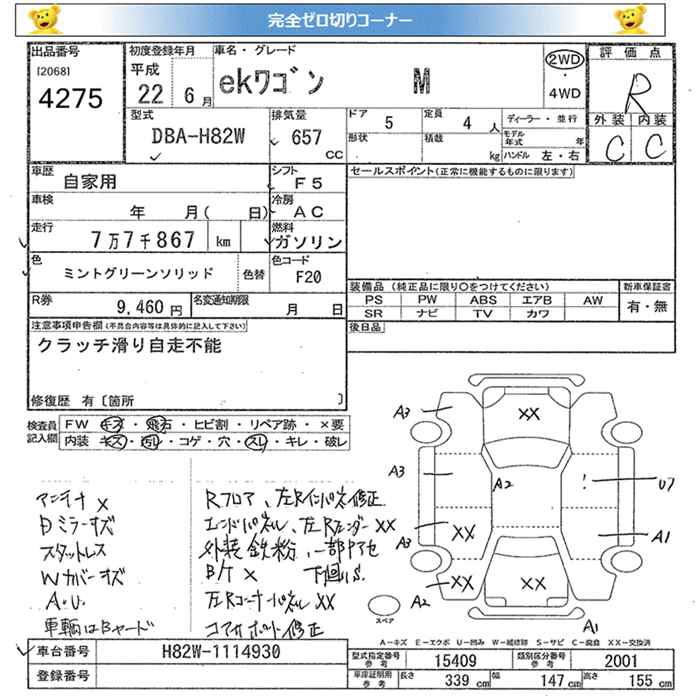 完全ゼロ切りコーナー
出品番号
[2068]
4275
初度登録年月
平成
22 6月
車名・グレード
ekワゴン M
2WD
・
4WD
評価点
R
外装 内装
C C
型式
DBA-H82W
排気量
657
CC
ドア
5
定員
4 人
形状
積載
kg
ディーラー・並行
モデル年式 年
ハンドル 左・右
車歴
自家用
シフト
F5
車検
年 月( 日)
冷房
AC
走行
7万7千867 km
燃料
ガソリン
色
ミントグリーンソリッド
色替
色コード
F20
R券
9,460 円
名変通知期限
月 日
セールスポイント(正常に機能するものに限ります)
装備品(純正品に限り〇をつけてください)
PS PW ABS エアB AW
SR ナビ TV カワ
新車保証書
有・無
後日品
注意事項申告欄(不具合内容等は具体的に記入して下さい)
クラッチ滑り自走不能
修復歴 有〔箇所 〕
検査員記入欄
FW キズ・飛石・ヒビ割・リペア跡・×要
内装 キズ・汚レ・コゲ・穴・スレ・キレ・破レ
アンテナ ×
Dミラーキズ
スタットレス
Wカバーキズ
A.U.
車輌はBヤード
Rフロア、左Rインパネ修正
エンドパネル、左Rフェンダー XX
外装鉄粉、一部アセ
B/ケ × 下廻りS.
左Rコーナーパネル XX
コアサポート修正
XX
A3
A3
A2
! U7
A3
XX
A1
A2
XX
XX
A1
スペア
A-キズ E-エクボ U-凹み W-補修跡 S-サビ C-腐食 XX-交換済
車台番号
H82W-1114930
登録番号
型式指定番号
参考
15409
類別区分番号
参考
2001
車庫証明用
参考
長さ
339 cm
幅
147 cm
高さ
155 cm